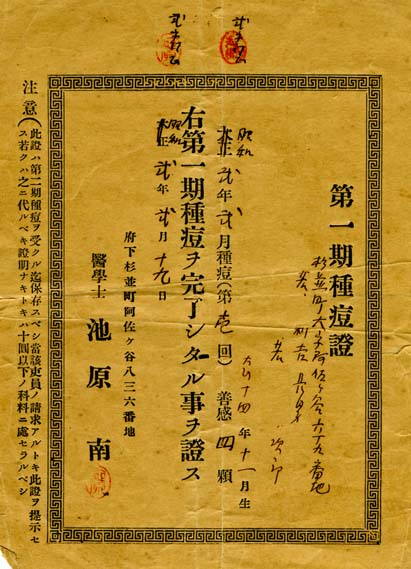 第一期種痘證
杉並町大字阿佐ヶ谷六十五番地
大正十四年十一月生
昭和
大正弐年弐月種痘(第壱回)善感四顆
右第一期種痘ヲ完了シタル事ヲ證ス
昭和
大正弐年弐月十九日
府下杉並町阿佐ヶ谷八三六番地
醫學士 池原南
注意(此證ハ第二期種痘ヲ受クル迄保存スベシ當該吏員ノ請求アルトキ此證ヲ提示セ
ス若クハ之ニ代ルベキ證明ナキトキハ十圓以下ノ科料ニ處セラルベシ